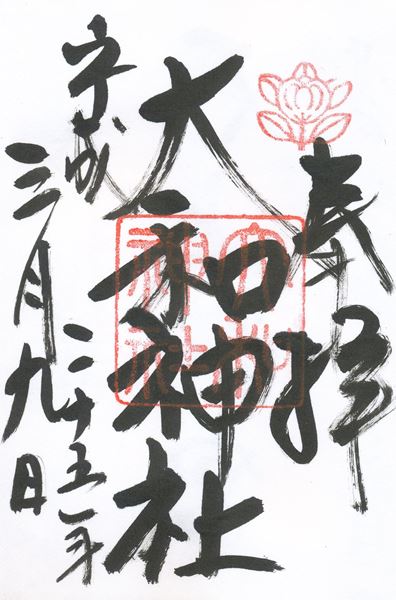 奉拝
大和神社
平成二十五年
三月九日